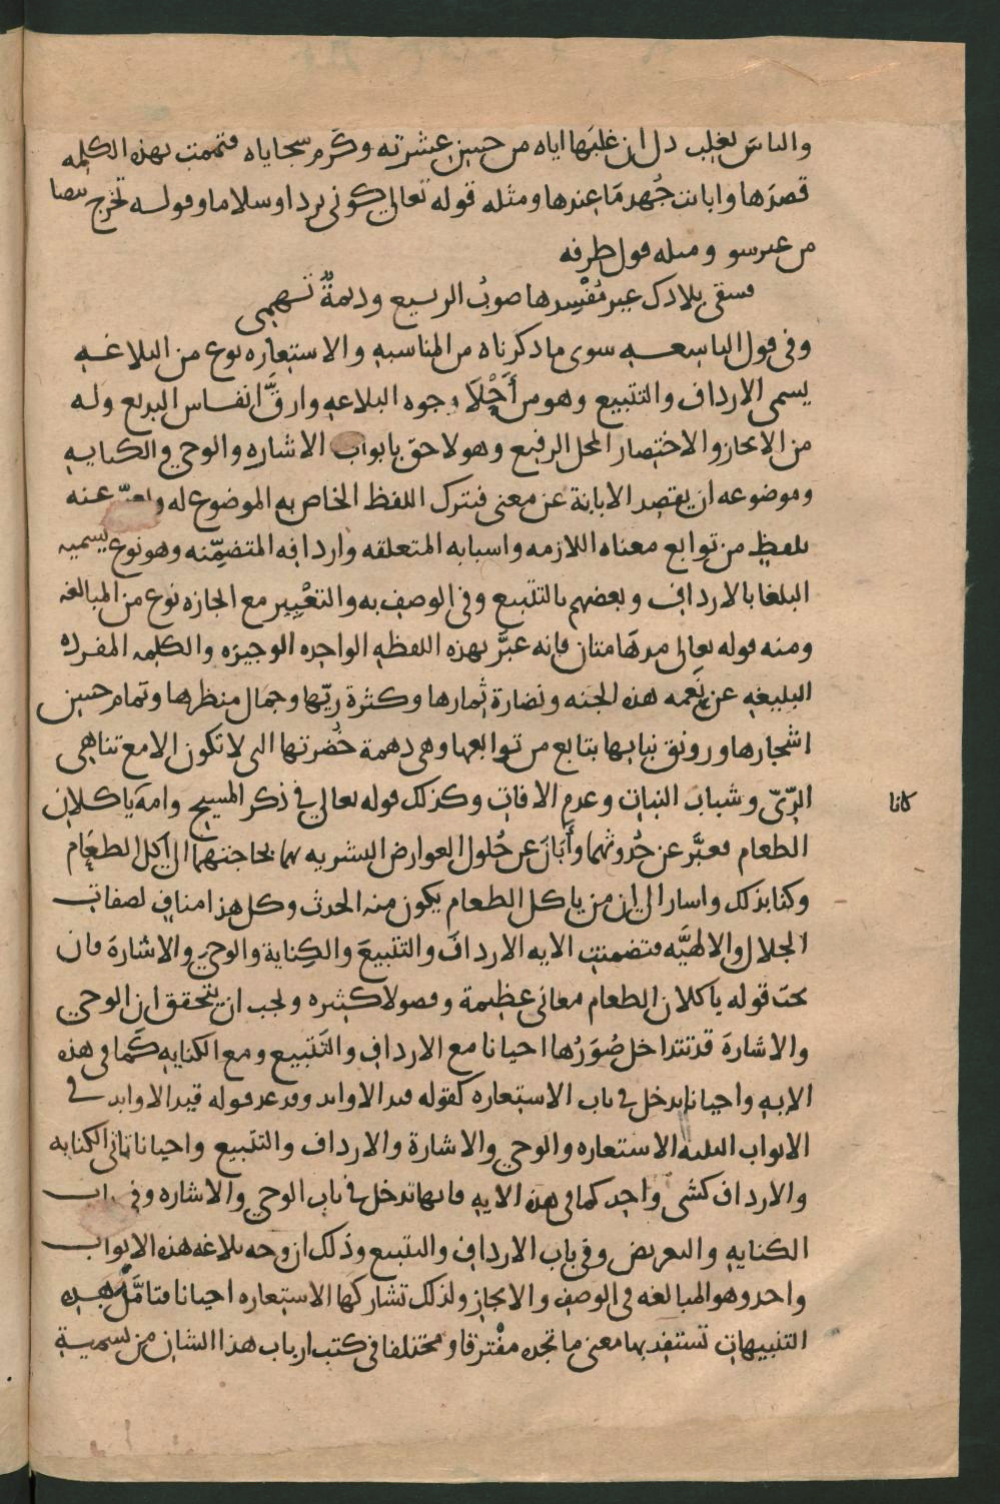 والناس يغلب دل ان غلبها اياه من حسن عشرته وكرم سجاياه فتممت بهذه الكلمه
قصدها وابانت جُهد مَا عندها ومثله قوله تعالى كونى بردا وسلاما وقوله تخرج بيضا
من غير سو ومثله قول طرفه
فسقى بلادك غير مُفْسِدها صوبُ الربيع وديمةٌ تهمى
وفى قول التاسعه سوى ما ذكرناه من المناسبه والاستعاره نوع من البلاغه
يسمى الارداف والتتبيع وهو من أَجْلَا وجوه البلاغه وارقّ انفاس البديع وله
من الايجاز والاختصار المحل الرفيع وهو لاحق بابواب الاشاره والوحى والكنايه
وموضوعه ان يقصد الابانة عن معنى فيترك اللفظ الخاص به الموضوع له ويعبّر عنه
بلفظٍ من توابع معناه اللازمه واسبابه المتعلقه واردافه المتضمِّنه وهو نوع يسميه
البلغا بالارداف وبعضهم بالتتبيع وفى الوصف به والتعْبِير مع ايجازه نوع من المبالغه
ومنه قوله تعالى مدهَامتان فإنه عبَّر بهذه اللفظه الواحده الوجيزه والكلمه المفرده
البليغه عن نَعمه هذه الجنه ونضارة ثمارها وكثرة ريّها وجمال منظرها وتمام حسن
اشجارها ورونق نباتها بتابع من توابعها وهى دهمة خُضرتها التى لا تكون الا مع تناهى
الرّىّ وشباب النبات وعدم الافات وكذلك قوله تعالى فى ذكر المسيح وامه ياكلان
كانا
الطعام فعبَّر عن حُدوثهما وأَبَانَ عن حُلول العوارض البشريه بهما بحاجتهما الى اكل الطعَام
وكنا بذلك واشار الى ان من ياكل الطعام يكون منه الحدث وكل هذا مناف لصفات
الجلال والالهيَّه فتضمنت الايه الاردافَ والتتبيعَ والكِناية والوحى والاشارة فان
تحت قوله ياكلان الطعام معانى عظيمة وفصولا كثيره ويجب ان يتحقق ان الوحى
والاشارةَ قد تتداخل صُوَرُها احيانا مع الارداف والتَّتبيع ومع الكنايه كَما فى هذه
الايه واحيانا يدخل فى باب الاستعاره كقوله قيد الاوابد وقد عد قوله قيد الاوابد فى
الابواب الثلثه الاستعاره والوحى والاشارة والارداف والتتبيع واحيانا تاتى الكنايه
والارداف كشى واحد كما فى هذه الايه فانها تدخل فى باب الوحى والاشاره وفى باب
الكنايه والتعريض وفى باب الارداف والتتبيع وذلك ان وجه بلاغه هذه الابواب
واحد وهو المبالغه فى الوصف والايجاز ولذلك تشاركها الاستعاره احيانا فتامَّل هذه
التنبيهات تستفد بها معنى ما تجده مفْترقا ومختلفا فى كتب ارباب هذا الشان من تسمية